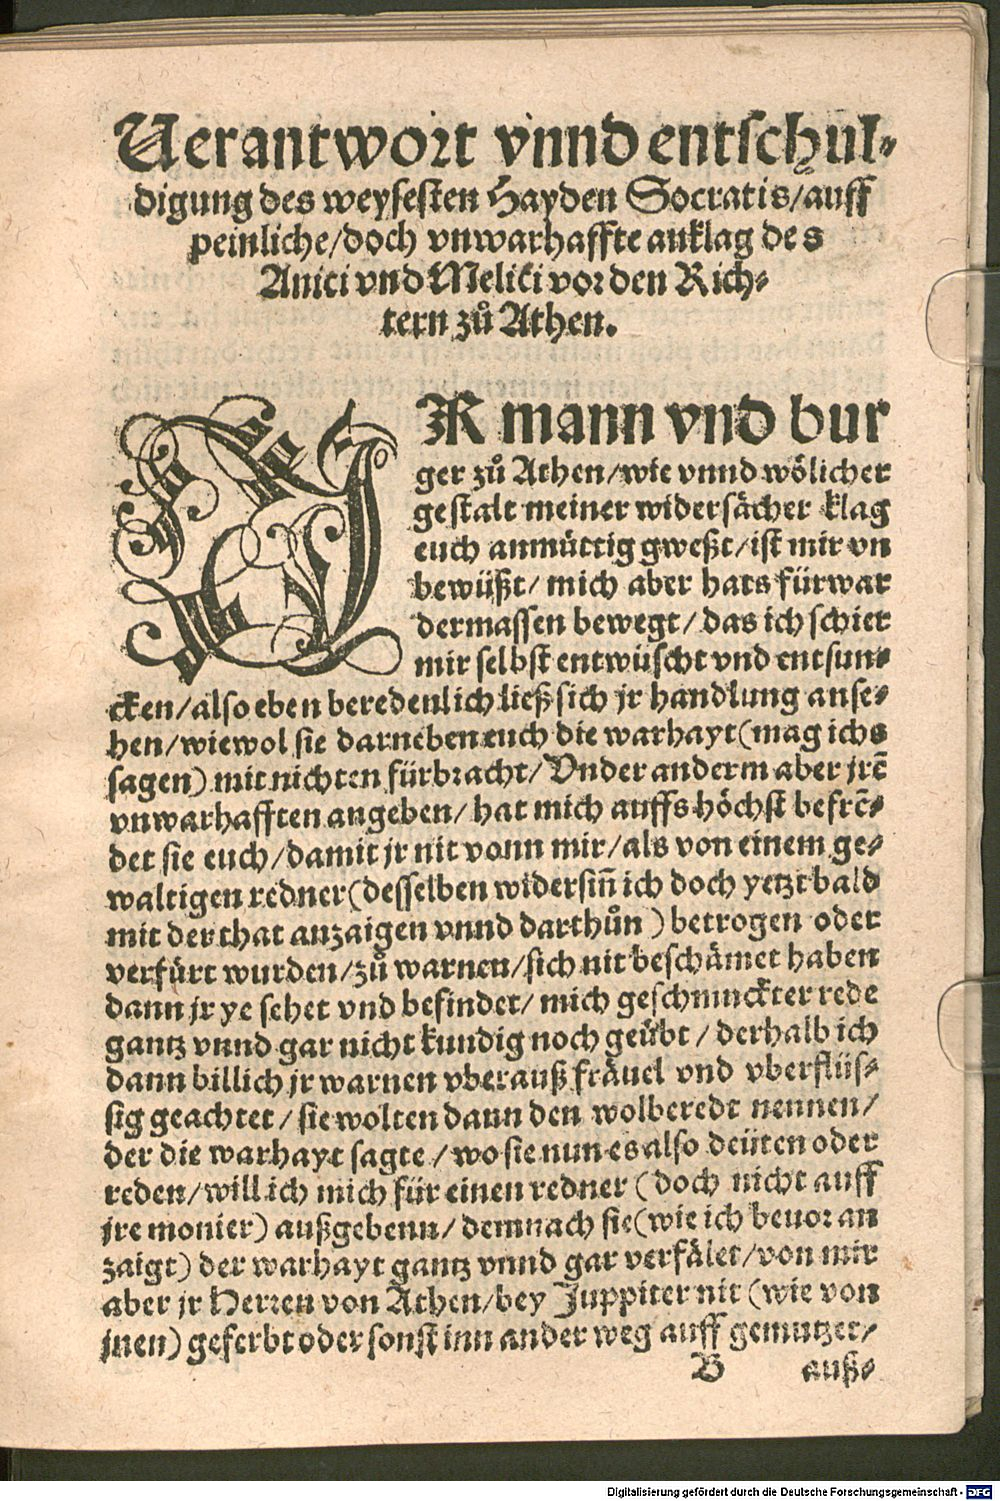 Verantwort vnnd entschul⸗
digung des weysesten Hayden Socratis/auff
peinliche/doch vnwarhaffte anklag des
Anici vnd Meliti vor den Rich⸗
tern zů Athen.
IR mann vnd bur
ger zů Athen/wie vnnd wölicher
gestalt meiner widersächer klag
euch anmüttig gweßt/ist mir vn
bewüßt/ mich aber hats fürwar
dermassen bewegt/ das ich schier
mir selbst entwüscht vnd entsun⸗
cken/also eben beredenlich ließ sich jr handlung anse⸗
hen/wiewol sie darneben euch die warhayt(mag ichs
sagen) mit nichten fürbracht/ Vnder anderm aber jrē
vnwarhafften angeben/ hat mich auffs höchst befrē⸗
det sie euch/damit jr nit vonn mir/als von einem ge⸗
waltigen redner(desselben widersiñ ich doch yetzt bald
mit der that anzaigen vnnd darthůn) betrogen oder
verfürt wurden/zů warnen/sich nit beschämet haben
dann jr ye sehet vnd befindet/ mich geschmuckter rede
gantz vnnd gar nicht kundig noch geübt/ derhalb ich
dann billich jr warnen vberauß fräuel vnd vberflüs⸗
sig geachtet/ sie wolten dann den wolberedt nennen/
der die warhayt sagte/ wo sie nun es also deüten oder
reden/will ich mich für einen redner (doch nicht auff
jre monier) außgebenn/ demnach sie(wie ich beuor an
zaigt) der warhayt gantz vnnd gar verfälet/von mir
aber jr Herren von Athen/bey Juppiter nit (wie von
jnen) geferbt oder sonst inn ander weg auff gemutzet/
B auß⸗
Digitalisierung gefördert durch die Deutsche Forschungsgemeinschaft - DFG